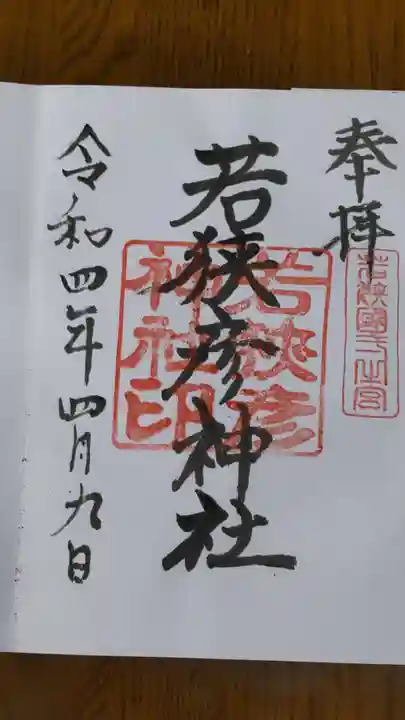 奉拝
若狭國一之宮
若狭彦神社
若狭彦
神社印
令和四年四月九日